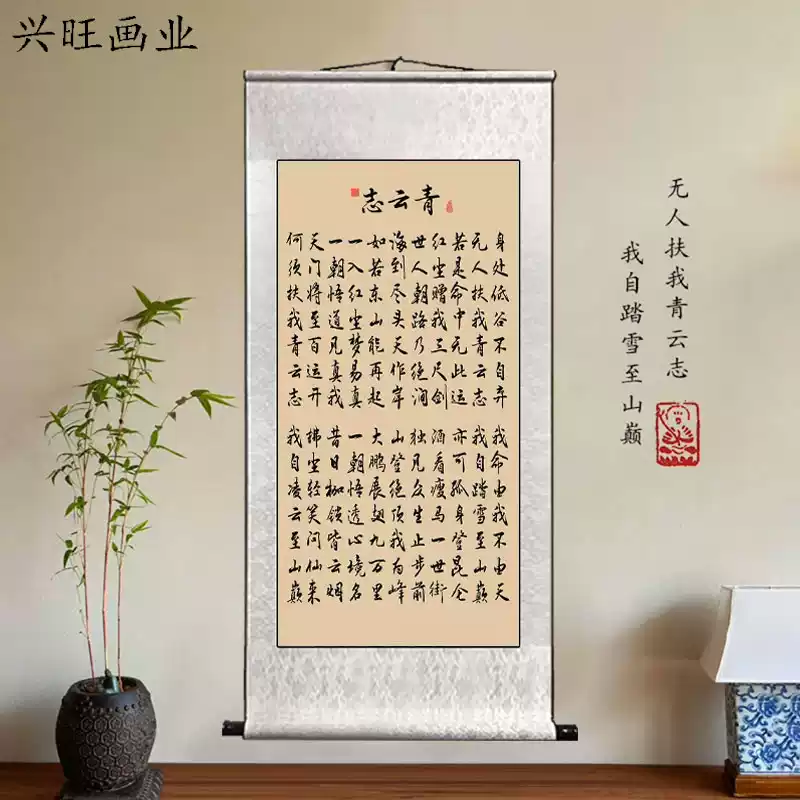 兴旺画业
青云志
身处低谷不自弃 我命由我不由天
无人扶我青云志 我自踏雪至山巅
若是命中无此运 亦可孤身登昆仑
红尘赠我三尺剑 酒看瘦马一世街
世人朝路乃绝涧 独凡众生止步前
海到尽头天作岸 山登绝顶我为峰
如若东山能再起 大鹏展翅九万里
一入红尘梦易真 一朝悟透心境名
一朝悟道凡真我 昔日枷锁皆云烟
天门将至百运开 拂尘轻笑问仙来
何须扶我青云志 我自凌云至山巅
无人扶我青云志
我自踏雪至山巅